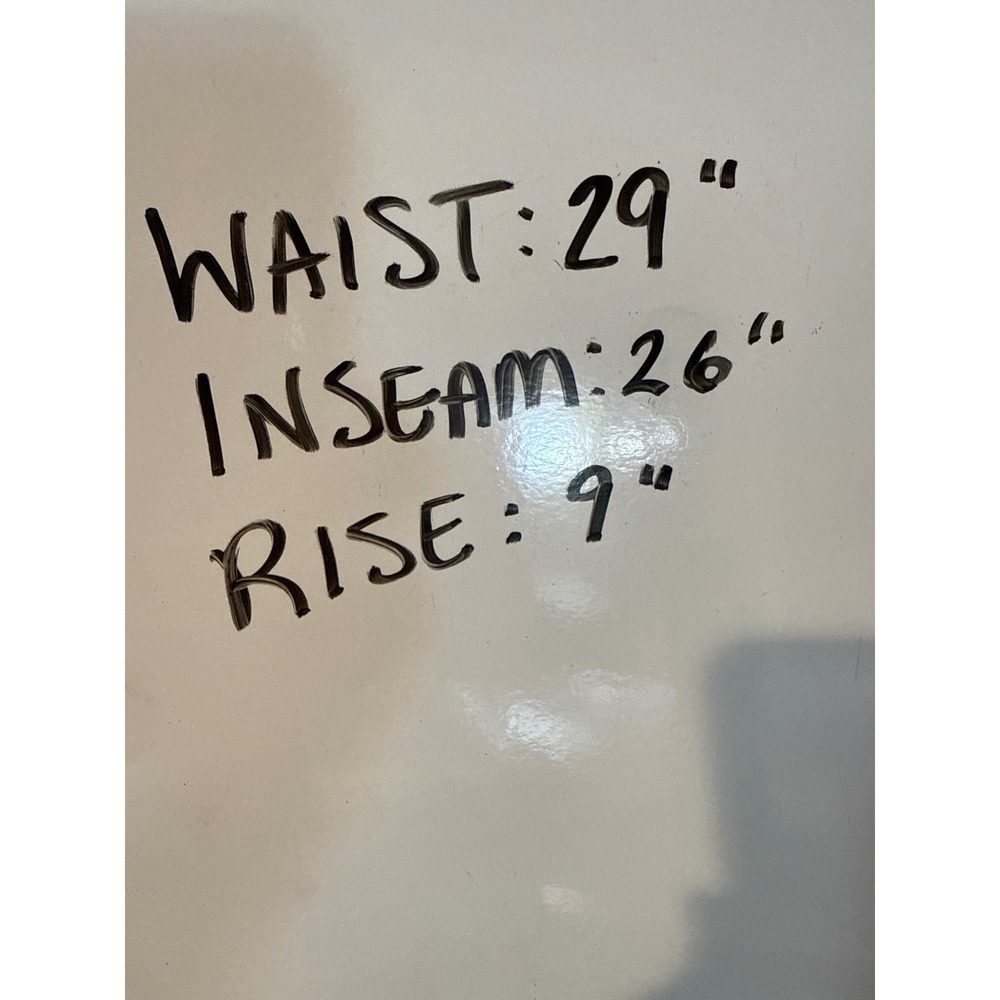 WAIST: 29"
INSEAM: 26"
RISE: 9"